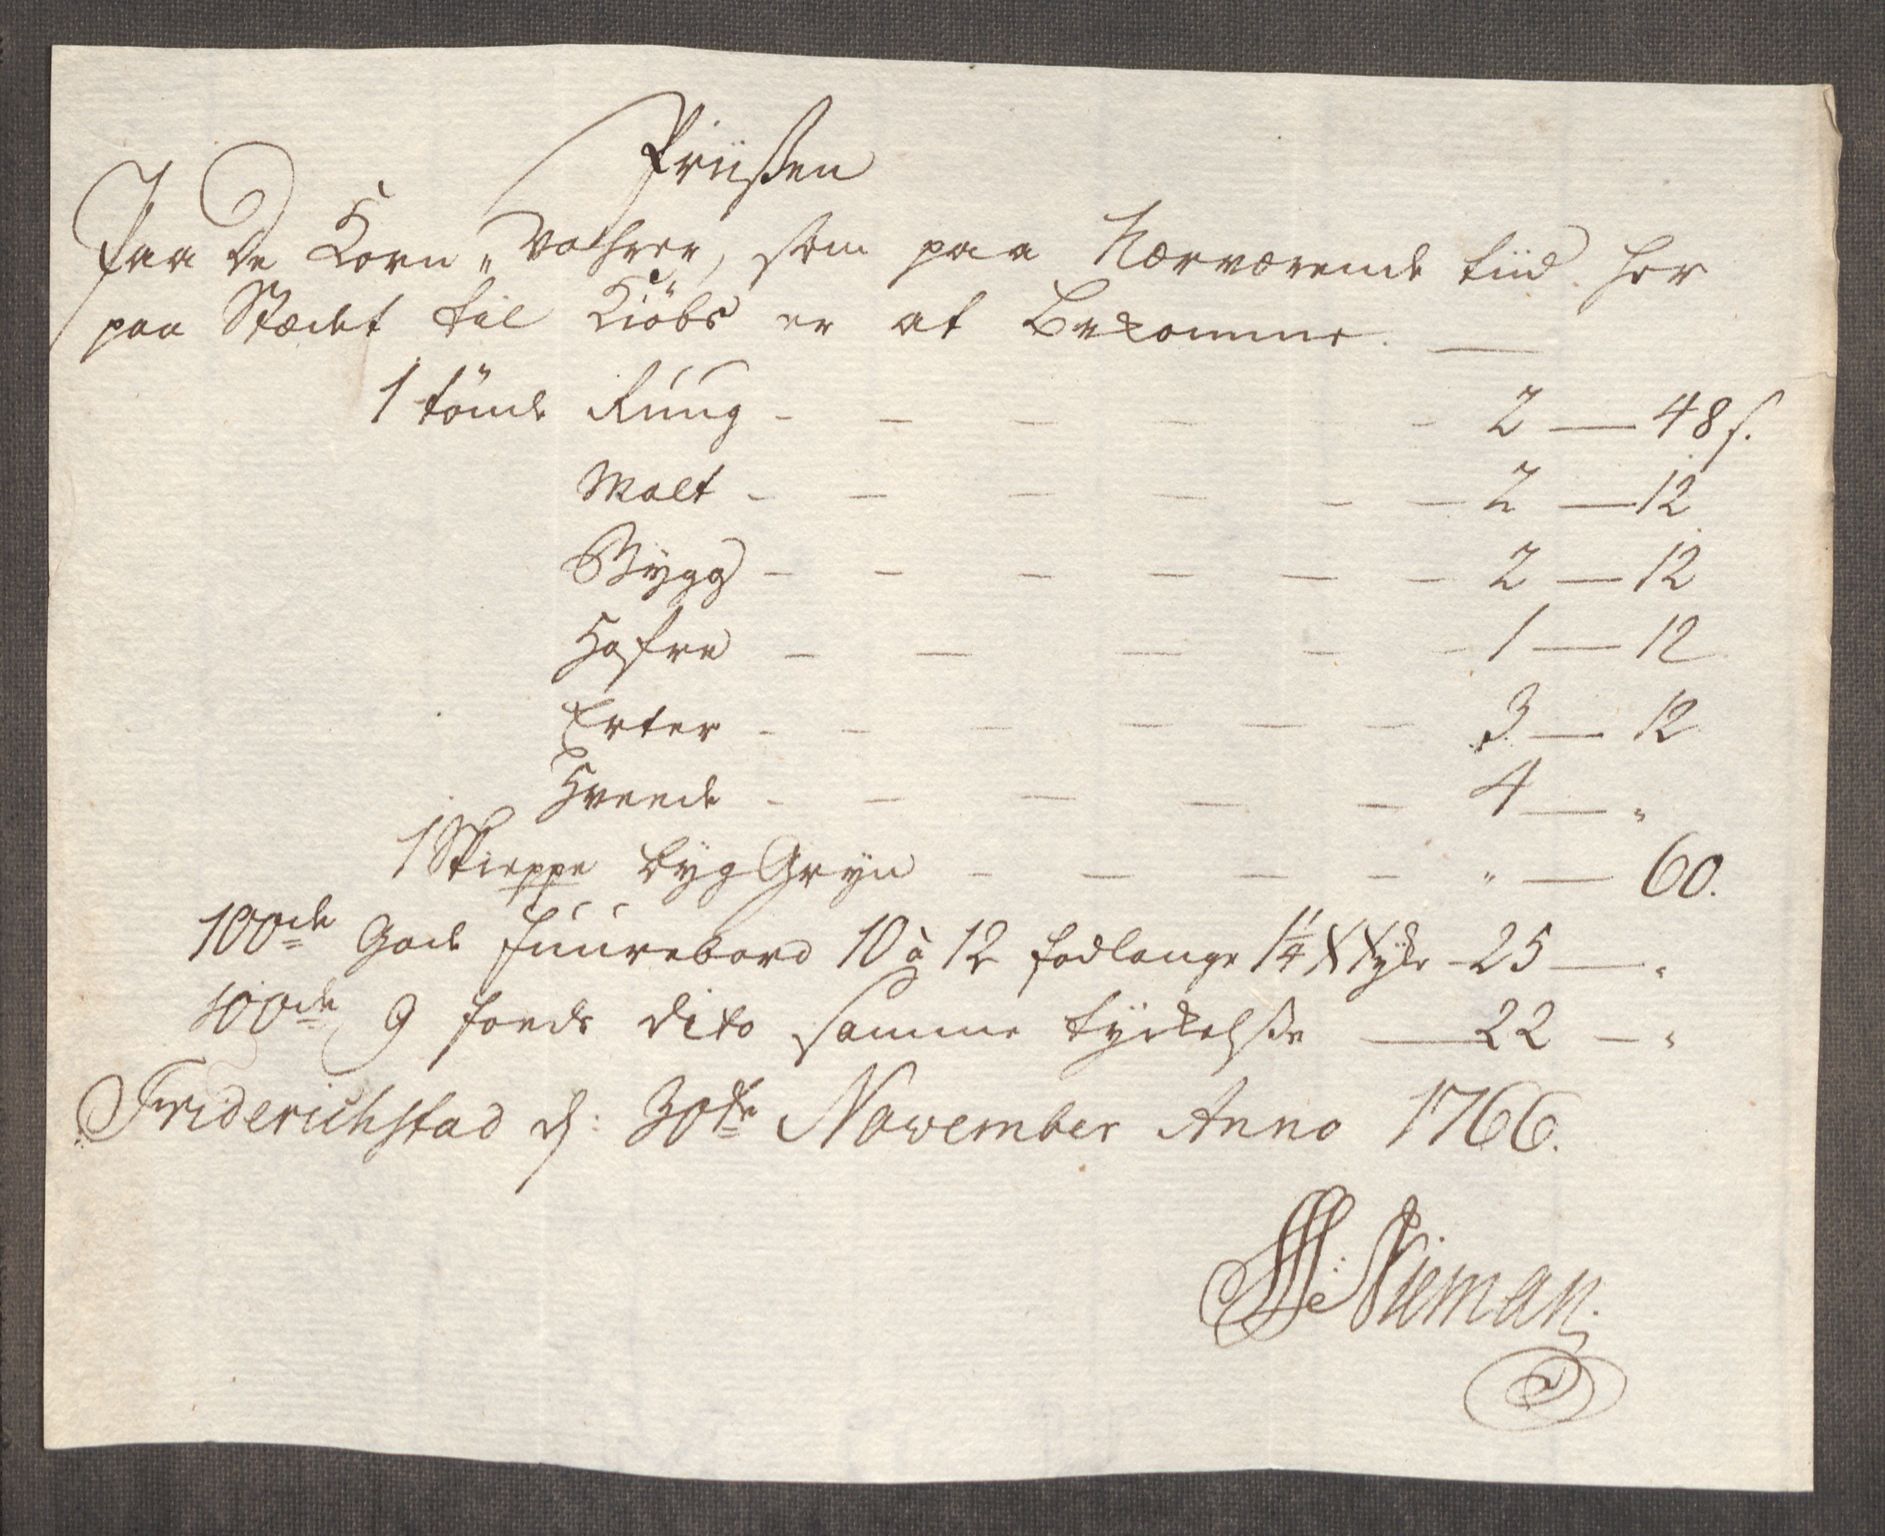 Priißen
Paa De Korn „ Vahrer, som paa Nærværende tiid her
paa Stædet til Kiöbs er at Bekomme.
1 tönde Rúúg - - - - - 2 — 48 s.
Malt - - - - - - 2 — 12
Bÿgg - - - - - - 2 — 12
Hafre - - - - - 1 — 12
Erter - - - - - - 3 — 12
Hveede - - - - - 4 — „
1 Skieppe byg Gryn - - - - „ — 60.
100de Gode fúúrebord 10 à 12 fodlange 1 1/4 tykke - 25 — „
100de 9 foeds dito samme tyckelße — 22 — „
Friderichstad d: 30te November Anno 1766.
Nieman